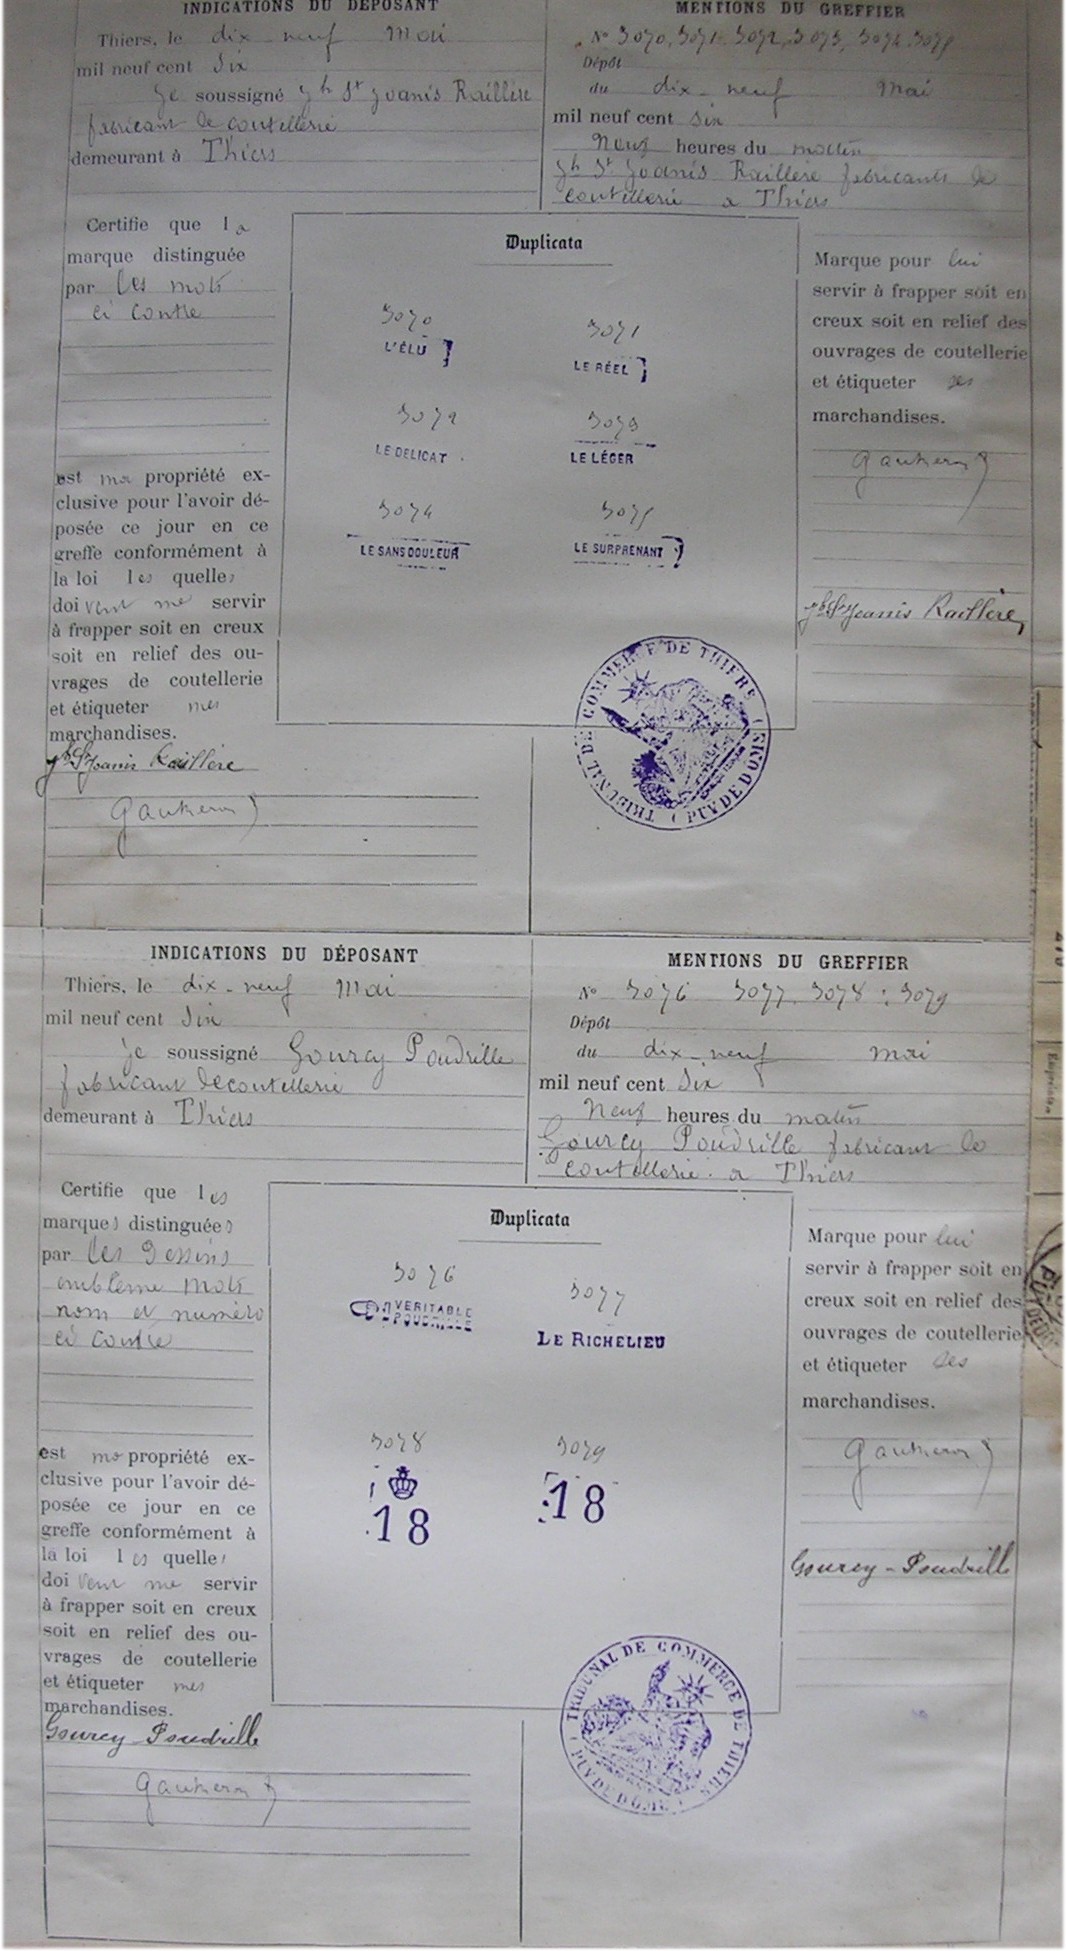 INDICATIONS DU DÉPOSANT
Thiers, le dix-neuf Mai
mil neuf cent Six
Je soussigné Jh St Joanis Raillère
fabricant de coutellerie
demeurant à Thiers
MENTIONS DU GREFFIER
No 3070, 3071, 3072, 3073, 3074, 3075
Dépôt
du dix-neuf Mai
mil neuf cent six
Neuf heures du matin
Jh St Joanis Raillère fabricants de
coutellerie a Thiers
Certifie que la
marque distinguée
par les mots
ci contre
est ma propriété ex-
clusive pour l'avoir dé-
posée ce jour en ce
greffe conformément à
la loi les quelles
doivent me servir
à frapper soit en creux
soit en relief des ou-
vrages de coutellerie
et étiqueter mes
marchandises.
Jh St Joanis Raillère
Duplicata
3070
L'ÉLU
3071
LE RÉEL
3072
LE DELICAT
3073
LE LÉGER
3074
LE SANS DOULEUR
3075
LE SURPRENANT
TRIBUNAL DE COMMERCE DE THIERS
(PUY DE DOME)
Marque pour lui
servir à frapper soit en
creux soit en relief des
ouvrages de coutellerie
et étiqueter ses
marchandises.
Jh St Joanis Raillère
INDICATIONS DU DÉPOSANT
Thiers, le dix-neuf Mai
mil neuf cent Six
Je soussigné Gourcy Poudrille
fabricant de coutellerie
demeurant à Thiers
MENTIONS DU GREFFIER
No 3076 3077, 3078 : 3079
Dépôt
du dix-neuf mai
mil neuf cent Six
Neuf heures du matin
Gourcy Poudrille fabricant de
coutellerie a Thiers
Certifie que les
marques distinguées
par les dessins
emblème mots
nom et numéro
ci contre
est ma propriété ex-
clusive pour l'avoir dé-
posée ce jour en ce
greffe conformément à
la loi les quelles
doivent me servir
à frapper soit en creux
soit en relief des ou-
vrages de coutellerie
et étiqueter mes
marchandises.
Gourcy-Poudrille
Duplicata
3076
VERITABLE
POUDRILLE
3077
LE RICHELIEU
3078
18
3079
18
TRIBUNAL DE COMMERCE DE THIERS
(PUY DE DOME)
Marque pour lui
servir à frapper soit en
creux soit en relief des
ouvrages de coutellerie
et étiqueter ses
marchandises.
Gourcy-Poudrille